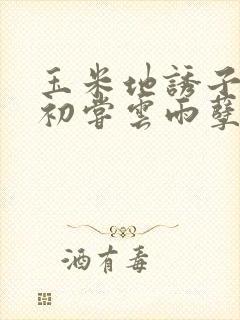 玉米地誘子
初嘗雲雨孽
酒有毒